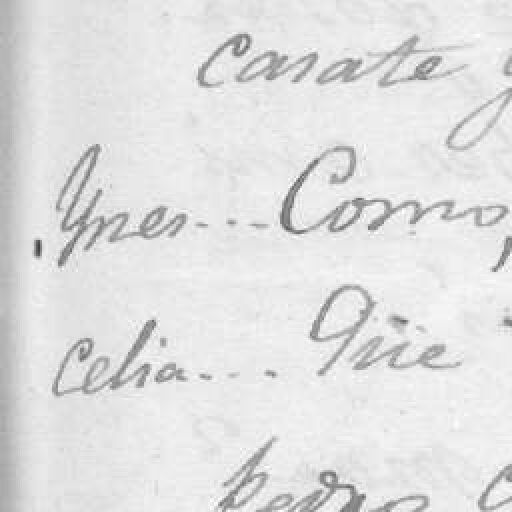 casate y
Ynes... Como,
Celia... Que
pedro